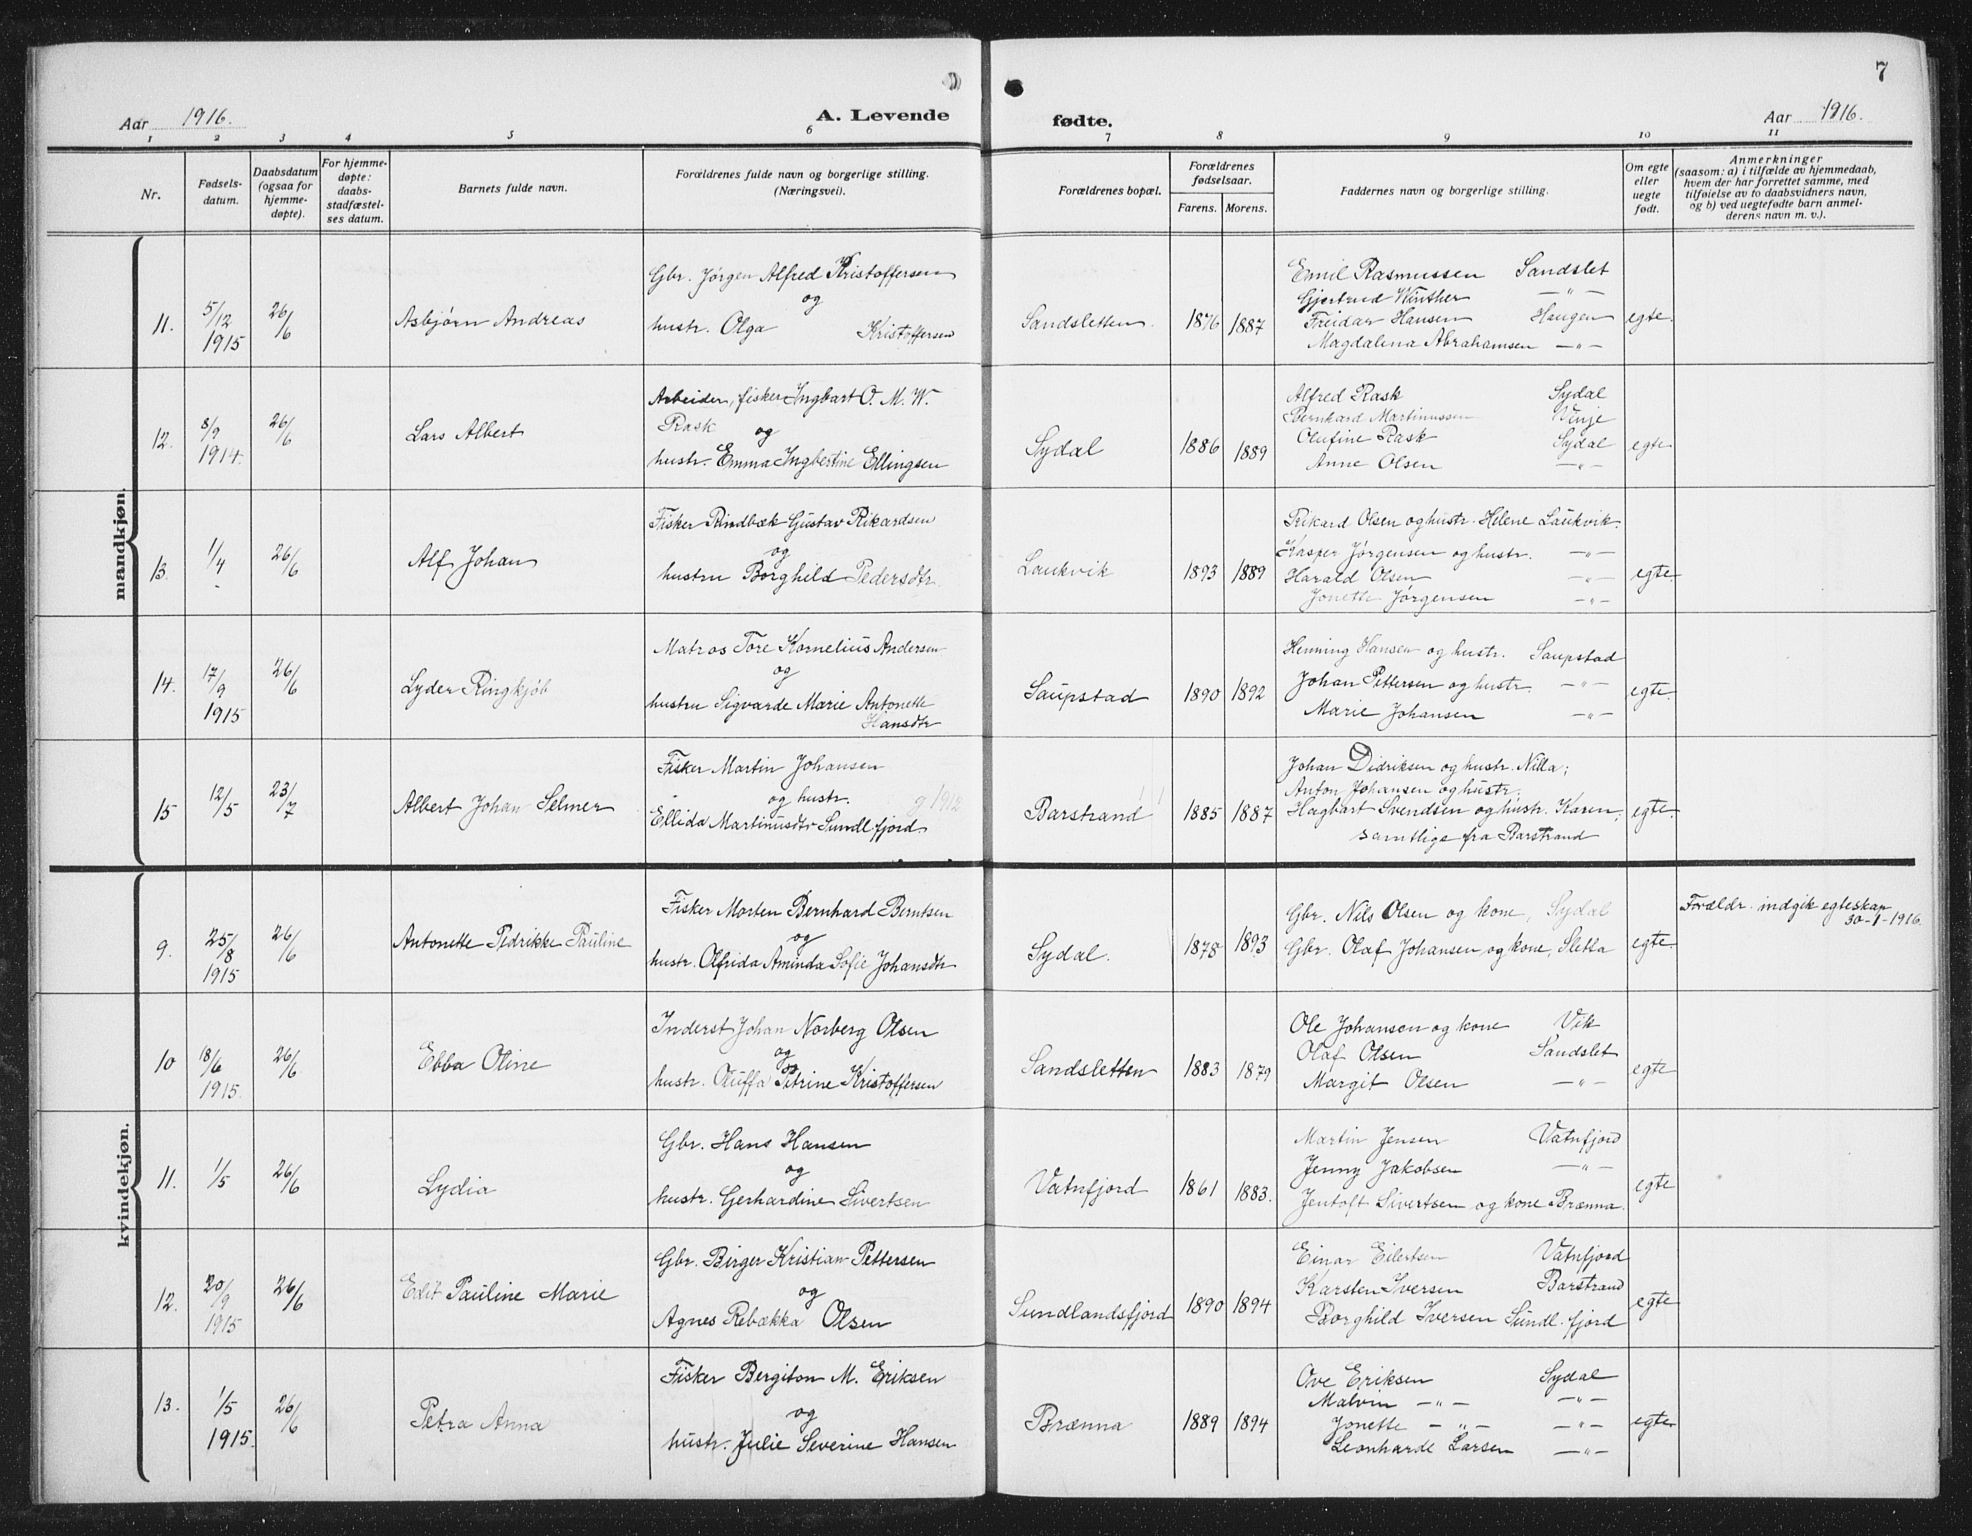 7
Aar 1916. A. Levende fødte. Aar 1916.
1 2 3 4 5 6 7 8 9 10 11
Nr.
Fødsels-
datum.
Daabsdatum
(ogsaa for
hjemme-
døpte).
For hjemme-
døpte:
daabs-
stadfæstel-
ses datum.
Barnets fulde navn.
Forældrenes fulde navn og borgerlige stilling.
(Næringsvei).
Forældrenes bopæl.
Forældrenes
fødselsaar.
Farens. Morens.
Faddernes navn og borgerlige stilling.
Om egte
eller
uegte
født.
Anmerkninger
(saasom: a) i tilfælde av hjemmedaab,
hvem der har forrettet samme, med
tilføielse av to daabsvidners navn,
og b) ved uegtefødte barn anmel-
derens navn m. v.).
mandkjøn.
11.
5/12
1915
26/6
Asbjørn Andreas
Gbr. Jørgen Alfred Kristoffersen
og
hustr. Olga Kristoffersen
Sandsletten.
1876 1887
Emil Rasmussen Sandslet
Gjertrud Winther —"—
Freidar Hansen Haugen
Magdalena Abrahamsen —"—
egte.
12.
8/9
1914.
26/6
Lars Albert
Arbeider, fisker Ingbart O. M. W.
Rask og
hustr. Emma Ingbertine Ellingsen
Sydal
1886 1889
Alfred Rask Sydal
Bernhard Martinussen Vinje
Olufine Rask Sydal
Anne Olsen —"—
egte
13.
1/4
26/6
Alf Johan
Fisker Rindbæk Gustav Rikardsen
og
hustru Borghild Pedersdtr.
Laukvik
1893 1889
Rikard Olsen og hustr. Helene Laukvik.
Kasper Jørgensen og hustr. —"—
Harald Olsen —"—
Jonette Jørgensen —"—
egte
14.
17/9
1915
26/6
Lyder Ringkjøb
Matros Tore Kornelius Andersen
og
hustru Sigvarde Marie Antonette
Hansdtr
Saupstad
1890 1892
Henning Hansen og hustr. Saupstad
Johan Pettersen og hustr. —"—
Marie Johansen —"—
egte.
15
12/5
23/7
Albert Johan Selmer
Fisker Martin Johansen
og hustr. g 1912
Ellida Martinusdtr Sundl.fjord
Barstrand
1885 1887
Johan Didriksen og hustr. Nilla;
Anton Johansen og hustr.
Hagbart Svendsen og hustr. Karen,
samtlige fra Barstrand
egte.
kvindekjøn.
9.
25/8
1915
26/6
Antonette Pedrikke Pauline
Fisker Morten Bernhard Berntsen
og
hustr. Olfrida Aminda Sofie Johansdtr
Sydal.
1878 1893
Gbr. Nils Olsen og kone, Sydal
Gbr. Olaf Johansen og kone, Sletta
egte.
Forældr. indgik egteskap
30-1-1916.
10
18/6
1915.
26/6
Ebba Oline
Inderst Johan Norberg Olsen
og
hustr. Oluffa Petrine Kristoffersen
Sandsletten
1883 1879
Ole Johansen og kone Vik
Olaf Olsen Sandslet
Margit Olsen —"—
egte
11.
1/5
26/6
Lydia
Gbr. Hans Hansen
og
hustr. Gerhardine Sivertsen
Vatnfjord
1861 1883.
Martin Jensen Vatnfjord
Jenny Jakobsen —"—
Jentoft Sivertsen og kone Brænna.
egte
12.
20/9
1915
26/6
Edit Pauline Marie
Gbr. Birger Kristian Pettersen
og
Agnes Rebækka Olsen
Sundlandsfjord
1890 1894
Einar Eilertsen Vatnfjord
Karsten Iversen Barstrand
Borghild Iversen Sundl.fjord
egte
13.
1/5
1915.
26/6
Petra Anna
Fisker Bergiton M. Eriksen
og
hustr. Julie Severine Hansen
Brænna
1889 1894
Ove Eriksen Sydal
Malvin —"— —"—
Jonette —"— —"—
Leonharde Larsen —"—
egte